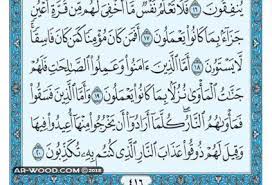 يُنفِقُونَ ۝١٦ فَلَا تَعْلَمُ نَفْسٌ مَّا أُخْفِيَ لَهُم مِّن قُرَّةِ أَعْيُنٍ
جَزَاءً بِمَا كَانُوا يَعْمَلُونَ ۝١٧ أَفَمَن كَانَ مُؤْمِنًا كَمَن كَانَ فَاسِقًا
لَّا يَسْتَوُونَ ۝١٨ أَمَّا الَّذِينَ ءَامَنُوا وَعَمِلُوا الصَّالِحَاتِ فَلَهُمْ
جَنَّاتُ الْمَأْوَىٰ نُزُلًا بِمَا كَانُوا يَعْمَلُونَ ۝١٩ وَأَمَّا الَّذِينَ فَسَقُوا
فَمَأْوَاهُمُ النَّارُ كُلَّمَا أَرَادُوا أَن يَخْرُجُوا مِنْهَا أُعِيدُوا فِيهَا
وَقِيلَ لَهُمْ ذُوقُوا عَذَابَ النَّارِ الَّذِي كُنتُم بِهِ تُكَذِّبُونَ ۝٢٠
٤١٦
AR-WOOD.COM©2018